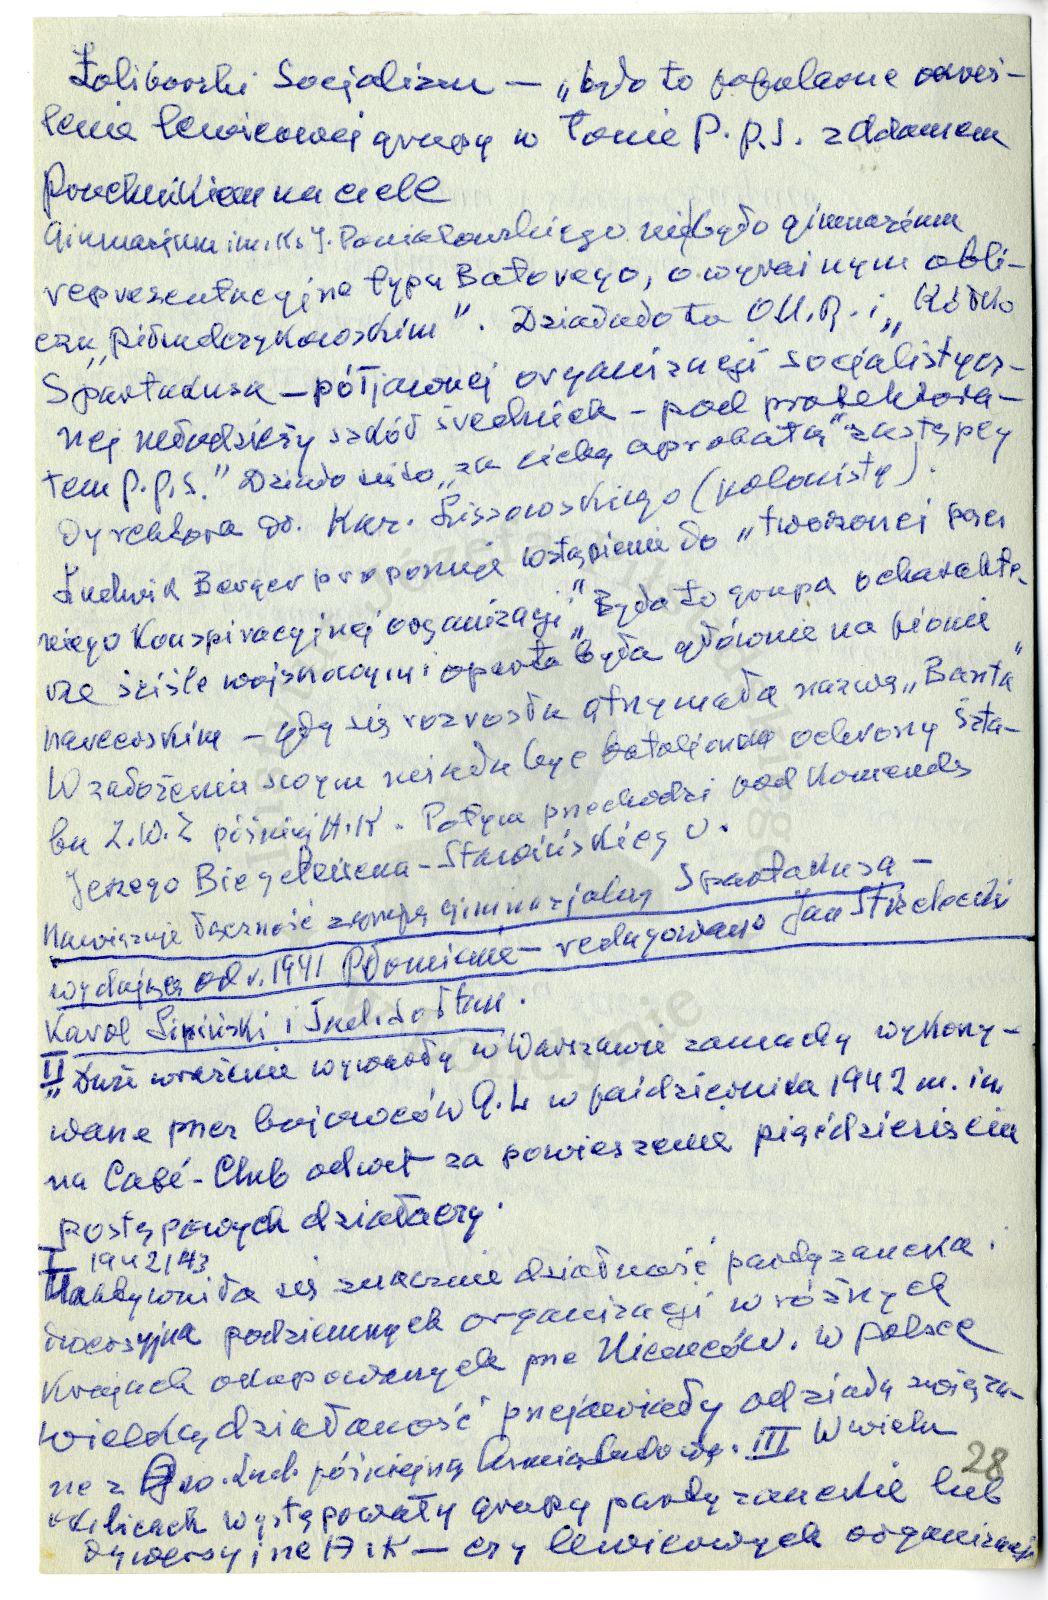 Żoliborski Socjalizm – „było to popularne okreś-
lenie lewicowej grupy w łonie P.P.S. z Adamem
Próchnikiem na czele
Gimnazjum im. Ks. J. Poniatowskiego nie było gimnazjum
reprezentacyjne typu Batorego, o wyraźnym obli-
czu „piłsudczykowskim". Działała tu OM.R. i „Kółko
Spartakusa – półjawnej organizacji socjalistycz-
nej młodzieży szkół średnich – pod protektora-
tem P.P.S." Działo się to „za cichą aprobatą" zastępcy
Dyrektora dr. Kaz. Lissowskiego (polonisty).
Ludwik Berger proponuje wstąpienie do „tworzonej przez
niego konspiracyjnej organizacji" „Była to grupa o charakte-
rze ściśle wojskowym i oparta była głównie na pionie
harcerskim – gdy się rozrosła otrzymała nazwę „Baszta"
W założeniu swym miała być batalionem ochrony Szta-
bu Z.W.Z później A.K. Potym przechodzi pod Komendę
Jerzego Biegeleisena-Stawińskiego.
Nawiązuje łączność z grupą gimnazjalną Spartakusa –
wydającą od r. 1941 Płomienie – redagowano Jan Strzelecki
Karol Lipiński i
II „Duże wrażenie wywarły w Warszawie zamachy wykony-
wane przez bojowców G.L w październiku 1942 m. in.
na Café-Club odwet za powieszenie pięćdziesięciu
postępowych działaczy.
I 1942/43
Uaktywniła się znacznie działność partyzancka i
dwersyjna podziemnych organizacji w różnych
Krajach okupowanych prze Niemców. W Polsce
wielką działaność przejawiały odziały związa-
ne z Gw. Lud. późniejszą Armią Ludową. III W wielu
okolicach występowały grupy partyzanckie lub
dywersyjne AiK – czy lewicowych organizacji
28